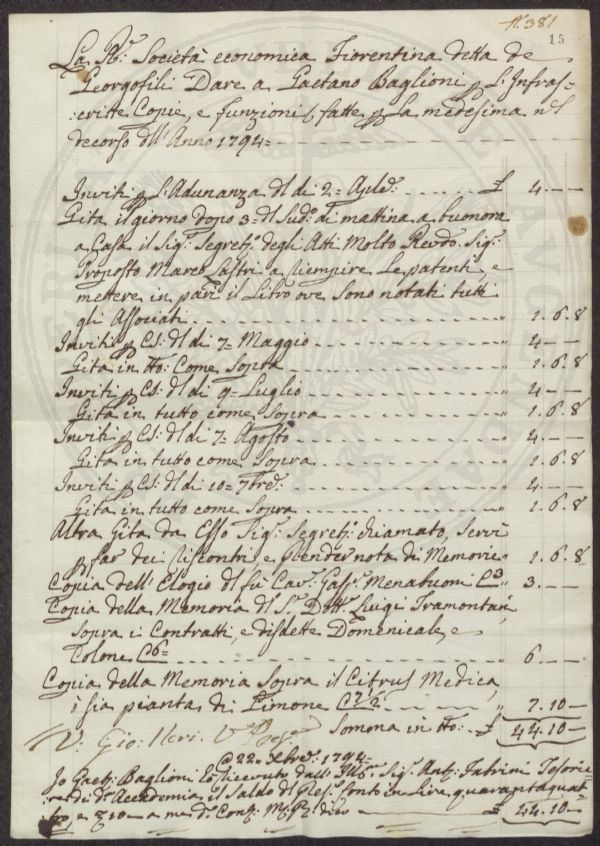 N. 381
15
La R: Società economica Fiorentina detta de
Georgofili Dare a Gaetano Baglioni p L'Infras=
:critte Copie, e funzioni fatte p La medesima nel
decorso dell'Anno 1794=
Inviti p l'Adunanza dl di 2= Aple: £ 4.—.—
Gita il giorno dopo 3= dl Sudo: di mattina a buonora
a Casa il Sigr: Segreto: degli Atti Molto Revdo. Sigr:
Proposto Marco Lastri a riempire Le patenti, e
mettere in pari il Libro ove Sono notati tutti
gli Associati 1. 6. 8
Inviti p Cs: dl di 7= Maggio 4.—
Gita in tto: Come Sopra 1. 6. 8
Inviti p Cs: dl di 9= Luglio 4.—
Gita in tutto come Sopra 1. 6. 8
Inviti p Cs: dl di 7= Agosto 4.—
Gita in tutto come Sopra 1. 6. 8
Inviti p Cs: dl di 10= 7bre: 4.—
Gita in tutto come Sopra 1. 6. 8
Altra Gita da Esso Sigr: Segreto: chiamato, Servì
p far dei riscontri e prender nota di Memorie 1. 6. 8
Copia dell'Elogio dl fu Cavr: Gaspo: Menabuoni C3 3.—.—
Copia della Memoria dl Sr. Dottr. Luigi Tramontani
Sopra i Contratti, e disdette Domenicale, e
Colone C6= 6.—.—
Copia della Memoria Sopra il Citrus Medica,
ò sia pianta di Limone C7 1/2 7. 10—
Somma in tto: £ 44. 10—
V: Gio: Neri
@ 22= Xbre: 1794=
Io Gaeto: Baglioni ho ricevuto dall'Illmo. Sigr. Anto: Fabrini Tesorie=
=re di da. Accademia il Saldo dl preste: Conto in Lire quarantaquat=
tro, e 10— a me do. Conti: Mo: Po: dico £ 44. 10—